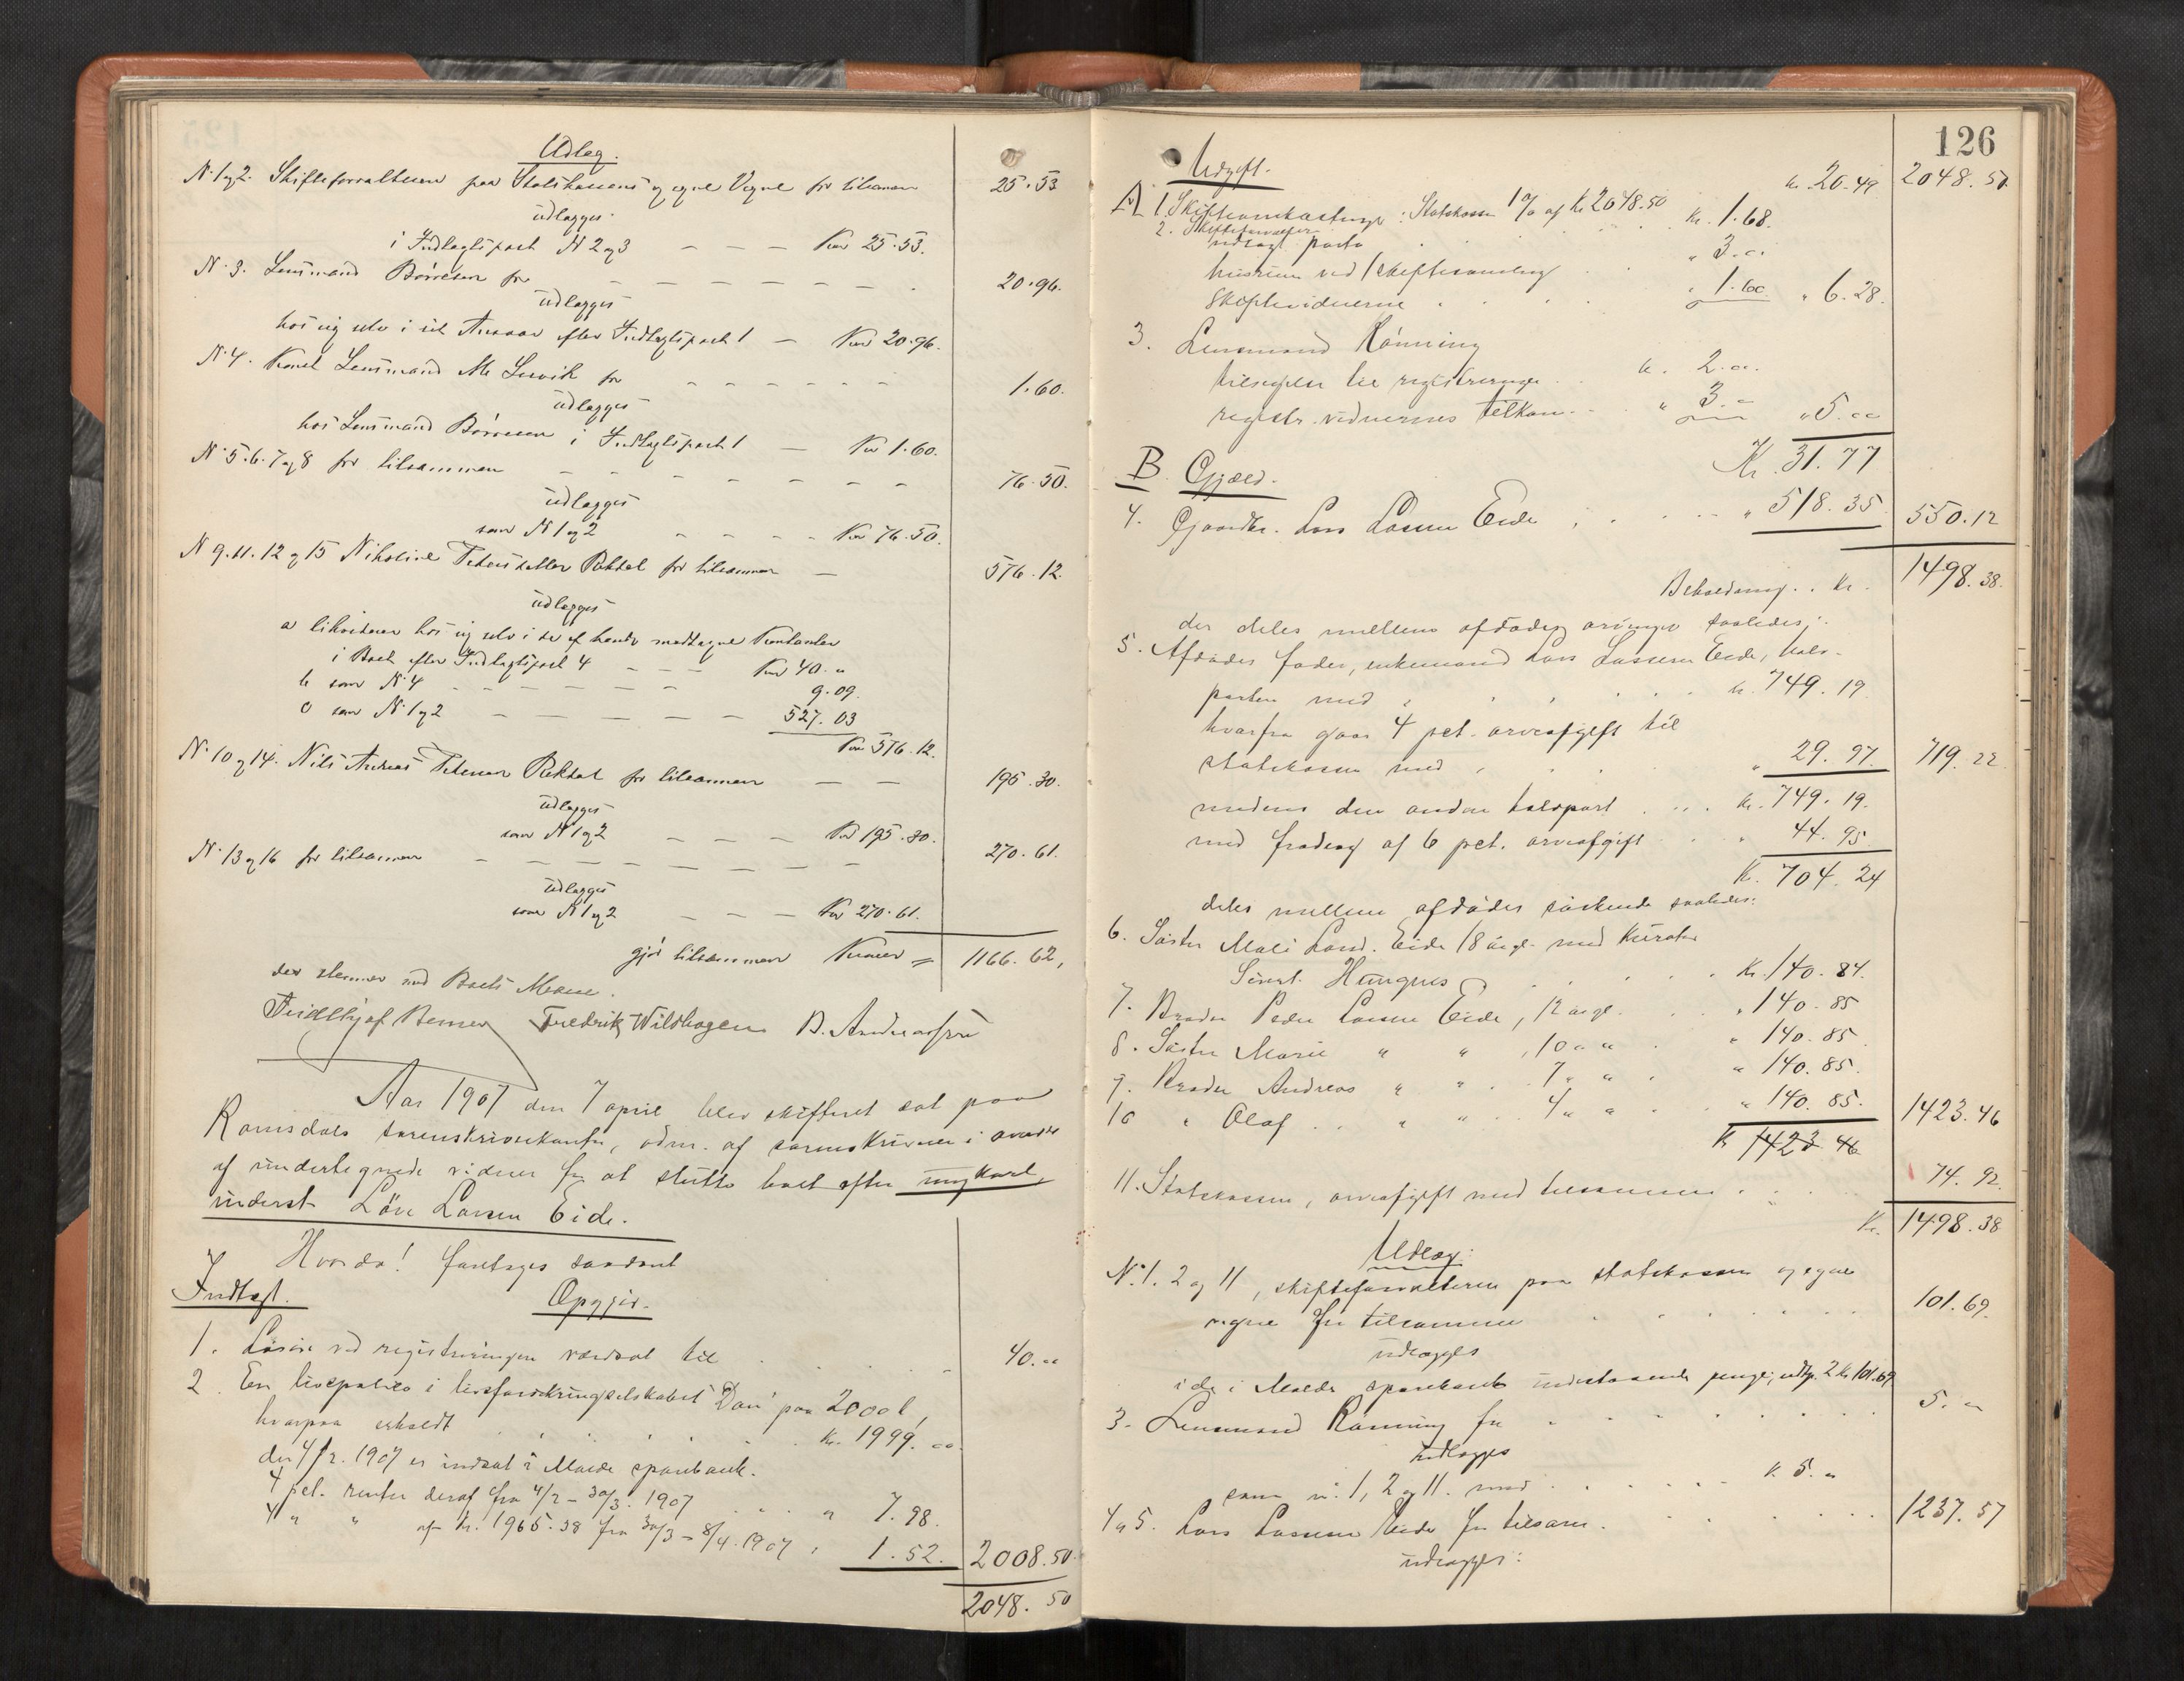 Udlæg.
N. 1 og 2. Skifteforvalteren paa Statskassens og egne Vegne for tilsammen 25.53
udlægges
i Indtægtspost N 2 og 3 — — — Kr 25.53.
N. 3. Lensmand Börresen for — — — 20.96.
udlægges
hos sig selv i sit Ansvar efter Indtægtspost 1 — Kr 20.96.
N. 4. Const. Lensmand for — — — 1.60.
udlægges
hos Lensmand Börresen i Indtægtspost 1 — Kr 1.60.
N. 5. 6. 7 og 8 for tilsammen — — — 76.50.
udlægges
som N 1 og 2 — — — Kr 76.50.
N 9. 11. 12 og 15 Nikoline Pedersdatter for tilsammen — 576.12.
udlægges
a likviderer hos sig selv i de af hende modtagne Kontanter
i Boet efter Indtægtspost 4 — — — Kr 40.„
b som N. 4 — — — 9.09.
c som N. 1 og 2 — — — 527.03
Kr 576.12.
N. 10 og 14. Nils Andreas Pedersen for tilsammen — — 195.80.
udlægges
som N 1 og 2 — — — Kr 195.80.
N. 13 og 16 for tilsammen — — — 270.61.
udlægges
som N 1 og 2 — — — Kr 270.61.
gjör tilsammen Kroner = 1166.62,
der stemmer med Boets Masse.
Fridthjof Fredrik Wildhagen B. Andreassen
Aar 1907 den 7 april blev skifteret sat paa
Romsdals sorenskriverkontor, adm. af sorenskriveren i overvær
af undertegnede vidner for at slutte boet efter ungkarl,
inderst Löve Larsen Eide.
Hvorda! foretages saadant
Indtægt. Opgjör.
1. Lösöre ved registreringen værdsat til . . . 40.„
2. En livspolice i livsforsikringsselskabet Dan paa 2000 ,
hvorpaa erholdt . . . Kr. 1999.„
der 4/2. 1907 er indsat i Molde sparebank.
4 pct. renter deraf fra 4/2 - 30/3. 1907 . . . „ 7.98.
4 „ „ af Kr. 1965.38 fra 30/3 - 8/4. 1907 „ 1.52. 2008.50
2048.50
126
Udgift. 2048.50
A 1. Skifteomkostninger: Statskassen 1% af Kr 2048.50 Kr. 20.49
2. Skifteforvalter
udlagt porto . . . Kr. 1.68.
husrum ved skiftesamling . . „ 3.„
skiftevidnerne . . . „ 1.60 „ 6.28.
3. Lensmand Rönning
tilsigelse til registreringen . . k. 2.„
registr. vidnernes tilkom. . . „ 3.„ „ 5.„
Kr. 31.77
B. Gjæld.
4. Gaardbr. Lars Larsen Eide . . . „ 518.35 550.12
Beholdning . . Kr. 1498.38.
der deles mellem afdödes arvinger saaledes:
5. Afdödes fader, enkemand Lars Larssen Eide, halv-
parten med . . . k. 749.19
hvorfra gaar 4 pct. arveafgift til
statskassen med . . „ 29.97. 719.22
medens den anden halvpart . . . k. 749.19.
med fradrag af 6 pct. arveafgift . . „ 44.95
K. 704.24
deles mellem afdödes söskende saaledes:
6. Söster Mali Larsd. Eide 18 aar gl. med Kurator
Sivert Hungnes . . . Kr. 140.84.
7. Broder Peder Larsen Eide, 12 aar gl. . . „ 140.85
8. Söster Marie „ „ , 10 „ „ . „ 140.85
9. Broder Andreas „ „ . 7 „ „ . „ 140.85.
10 „ Olaf . . „ „ 4 „ „ . „ 140.85. 1423.46
K 1423 46
11. Statskassen, arveafgift med tilsammen . . . 74.92.
Kr. 1498.38
Udlæg:
N. 1. 2 og 11, skifteforvalteren paa statskassen og egne
vegne for tilsammen . . . 101.69.
udlægges
i de i Molde sparebank indestaaende penge, indtp. 2 Kr 101.69
3. Lensmand Rönning for . . . 5.„
udlægges
som n. 1, 2 og 11. med . . . k. 5.„
4 „ 5. Lars Larssen Eide for tilsam. . . . 1237.57
udlægges: